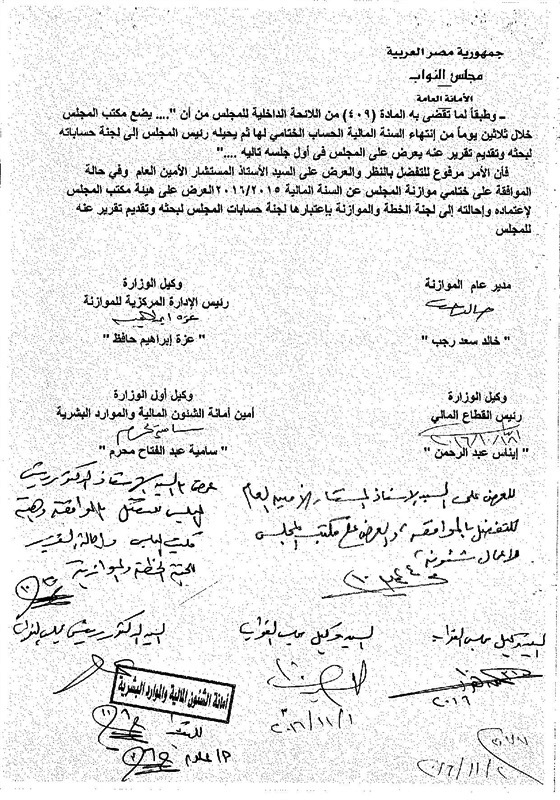 جمهورية مصر العربية
مجلس النواب
الأمانة العامة
ـ وطبقاً لما تقضى به المادة (٤٠٩) من اللائحة الداخلية للمجلس من أن ".... يضع مكتب المجلس
خلال ثلاثين يوماً من إنتهاء السنة المالية الحساب الختامي لها ثم يحيله رئيس المجلس إلى لجنة حساباته
لبحثه وتقديم تقرير عنه يعرض على المجلس فى أول جلسه تاليه ...."
فأن الأمر مرفوع للتفضل بالنظر والعرض على السيد الأستاذ المستشار الأمين العام وفي حالة
الموافقة على ختامي موازنة المجلس عن السنة المالية ٢٠١٦/٢٠١٥ العرض على هيئة مكتب المجلس
لإعتماده وإحالته إلى لجنة الخطة والموازنة بإعتبارها لجنة حسابات المجلس لبحثه وتقديم تقرير عنه
للمجلس
مدير عام الموازنة
خالد سعد
" خالد سعد رجب "
وكيل الوزارة
رئيس الإدارة المركزية للموازنة
عزه ابراهيم
" عزة إبراهيم حافظ "
وكيل الوزارة
رئيس القطاع المالي
" إيناس عبد الرحمن "
وكيل أول الوزارة
أمين أمانة الشئون المالية والموارد البشرية
سامية محرم
" سامية عبد الفتاح محرم "
للعرض على السيد الاستاذ المستشار الأمين العام
للتفضل بالموافقة والعرض على مكتب المجلس
لإعمال شئونه
عرض السيد الاستاذ الدكتور رئيس
المجلس للتفضل بالموافقة
مكتب المجلس وإحالة التقرير
لجنة الخطة والموازنة
السيد وكيل مجلس النواب
٢٠١٦
السيد وكيل مجلس النواب
٢٠١٦/١١/١
السيد الدكتور رئيس مجلس النواب
أمانة الشئون المالية والموارد البشرية
٢٠١٦/١١/٢